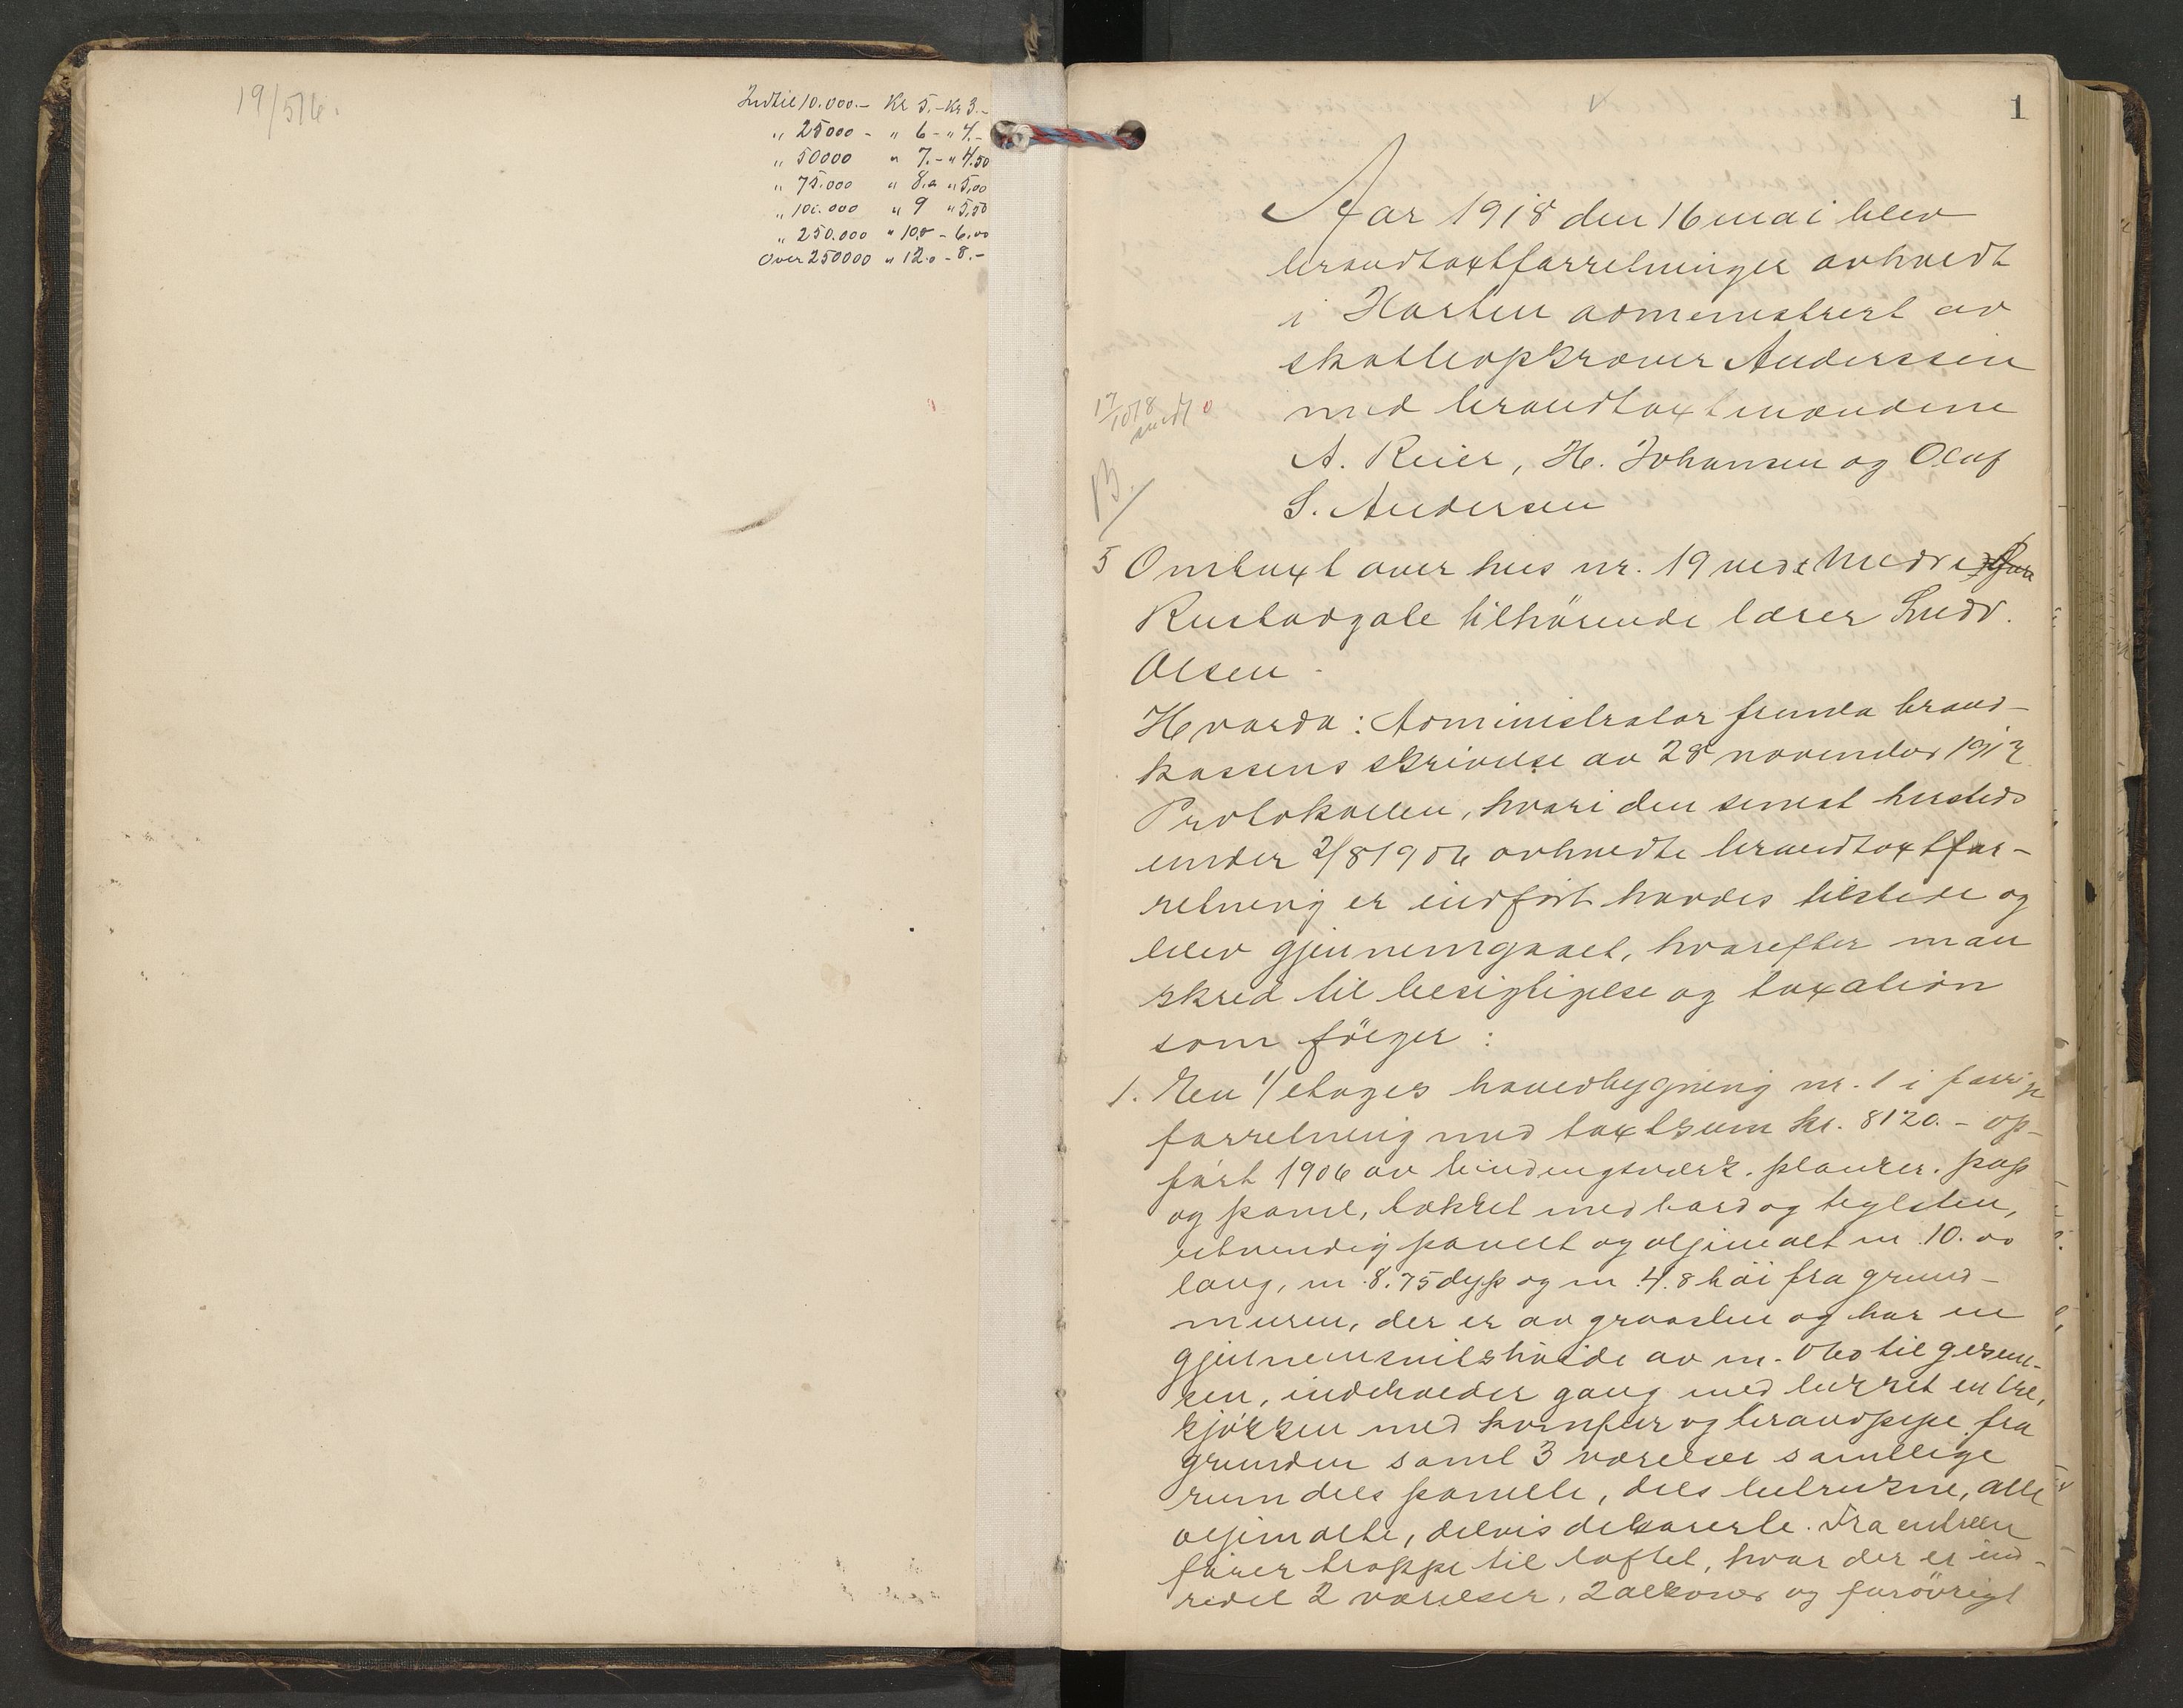 19/516.
Indtil 10.000.- Kr 5.- Kr 3.-
" 25000 - " 6 - " 4.-
" 50000 " 7.- " 4.50
" 75.000 " 8.- " 5,00
" 100.000 " 9 " 5,50
" 250.000 " 10,0 - 6,00
Over 250000 " 12.0 - 8.-
1
Aar 1918 den 16 mai blev
brandtaxtforretninger avholdt
i Horten administrert av
skatteopkræver Anderssen
med brandtaxtmændene
A. Reier, H. Johansen og Olaf
S. Andersen
17/10 18
sendt
B.
5 Omtaxt over hus nr. 19 ved Nedre
Rustadgate tilhørende lærer Ludv.
Olsen -
Hvorda: Administrator fremla brand-
kassens skrivelse av 28 november 1917
Protokollen, hvori den senest husteds
under 2/8 1906 avholdte brandtaxtfor-
retning er indført havdes tilstede og
blev gjennemgaaet, hvorefter man
skred til besigtigelse og taxation
som følger:
1. Een 1/ etages hovedbygning nr. 1 i forrige
forretning med taxtsum kr. 8120.- op-
ført 1906 av bindingsverk. planker. pap
og panel, tækket med bord og teglsten,
utvendig panelt og oljemalt m 10.00
lang, m 8.75 dyp og m 4.8 høi fra grund-
muren, der er av graasten og har en
gjennemsnitshøide av m. 0.60 til gesem-
sen, indeholder gang med lukket entre,
kjøkken med komfur og brandpipe fra
grunden samt 3 værelser samtlige
rum dels panelte, dels betrukne, alle
oljemalte, delvis dekorerte. Fra entreen
fører trappe til loftet, hvor der er ind-
redet 2 værelser, 2 alkover og forøvrigt